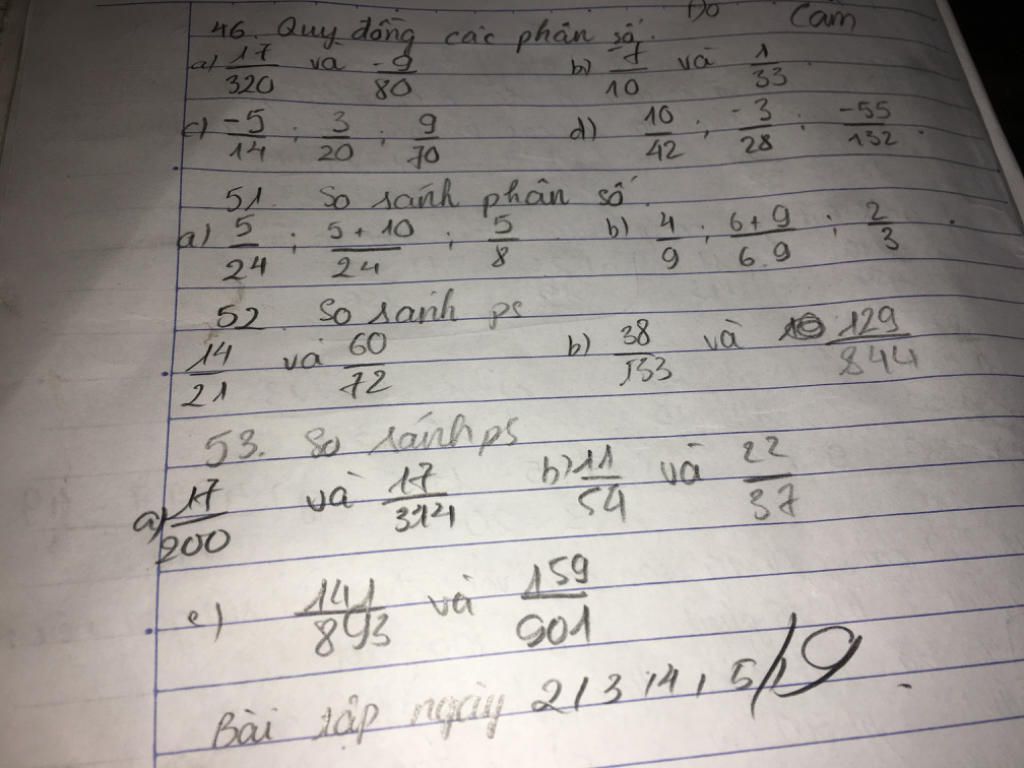 Cam
46. Quy đồng các phân số.
a) 17/320 và -9/80 b) 7/10 và 1/33
c) -5/14 ; 3/20 ; 9/70 d) 10/42 ; -3/28 ; -55/132.
51. So sánh phân số.
a) 5/24 ; 5+10/24 ; 5/8 b) 4/9 ; 6+9/6.9 ; 2/3
52. So sánh ps
14/21 và 60/72 b) 38/133 và 129/844
53. So sánh ps
a) 17/200 và 17/314 b) 11/54 và 22/37
c) 141/893 và 159/901
Bài tập ngày 2/3/4, 5/